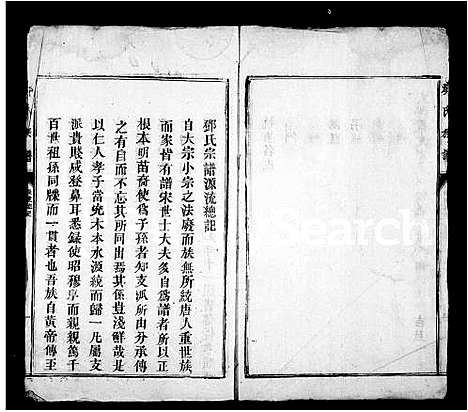 鄧氏宗譜源流總記
自大宗小宗之法廢而族無所統唐人重世族
而家皆有譜宋世士大夫多自爲譜者所以正
根本明苗裔使爲子孫者知支派所由分承傳
之有自而不忘其所同出焉其係豈淺鮮哉是
以仁人孝子當先木本水源統而歸一凡屬支
派貴賤咸登鼻耳悉錄使昭穆序而親親篤千
百世祖孫同牒而一貫者也吾族自黃帝傳至